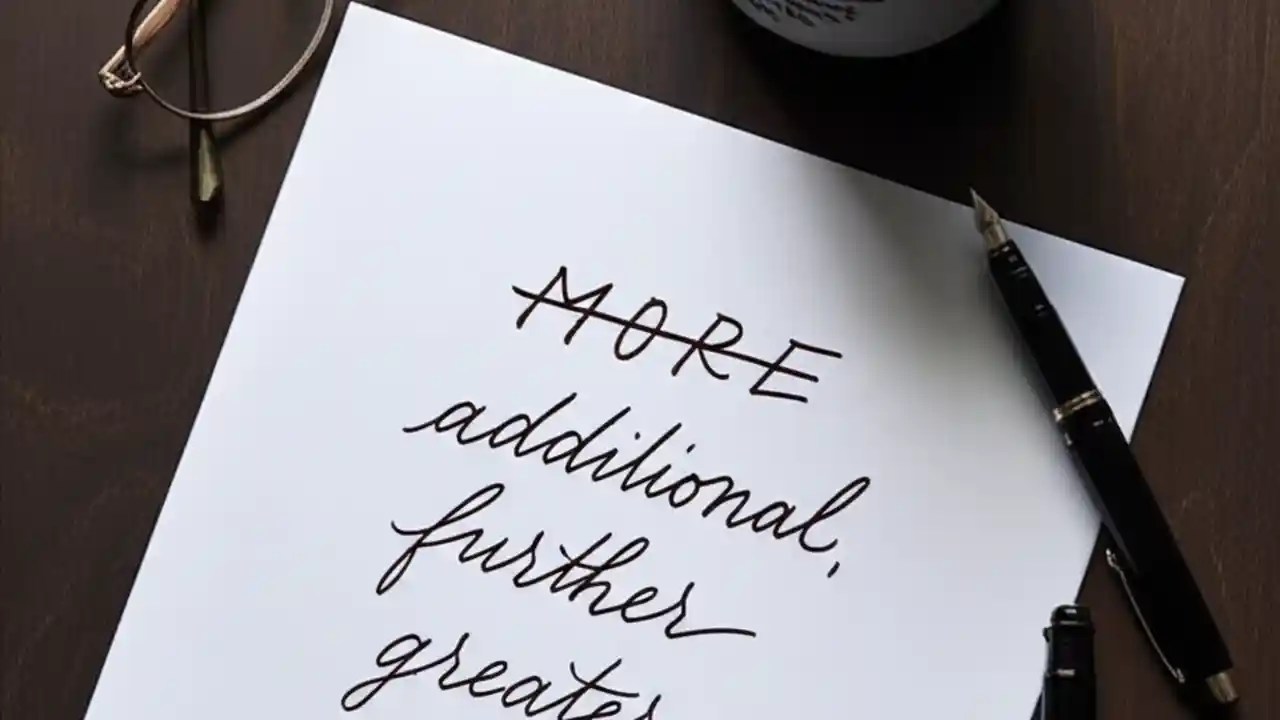 MORE
additional,
further
greater